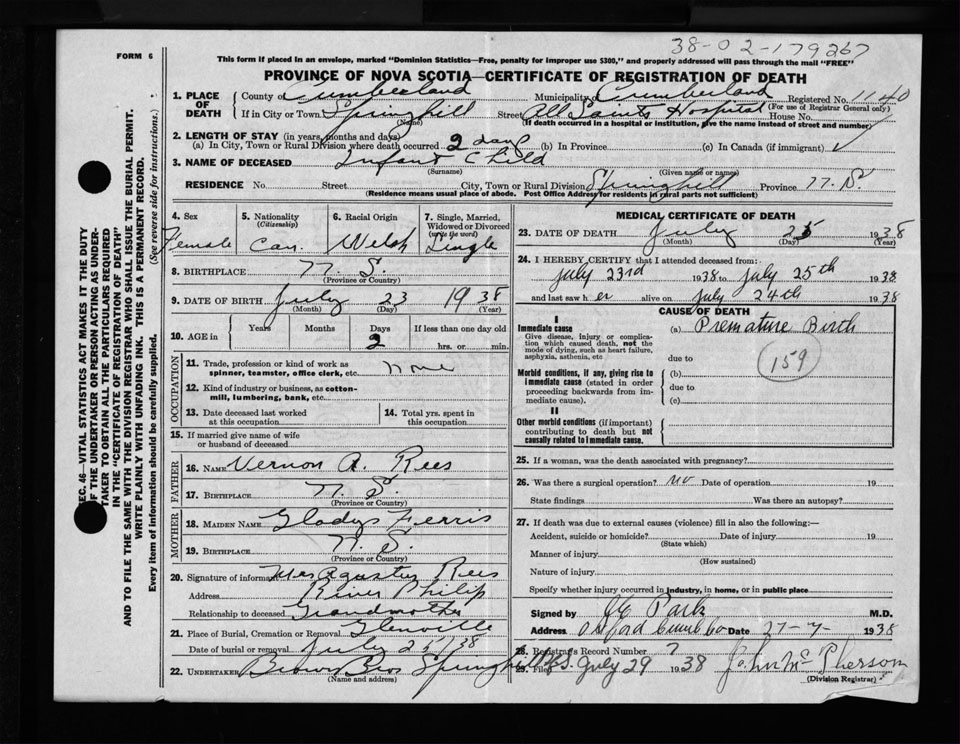 38-02-179267
FORM 6
This form if placed in an envelope, marked "Dominion Statistics—Free, penalty for improper use $300," and properly addressed will pass through the mail "FREE"
PROVINCE OF NOVA SCOTIA—CERTIFICATE OF REGISTRATION OF DEATH
1. PLACE OF DEATH County of Cumberland Municipality of Cumberland Registered No. 1140
(For use of Registrar General only)
If in City or Town Springhill (Name) Street All Saints Hospital House No.
(If death occurred in a hospital or institution, give the name instead of street and number)
2. LENGTH OF STAY (in years, months and days)
(a) In City, Town or Rural Division where death occurred 2 days (b) In Province (c) In Canada (if immigrant)
3. NAME OF DECEASED Infant Child
(Surname) (Given name or names)
RESIDENCE No. Street City, Town or Rural Division Springhill Province N. S.
(Residence means usual place of abode. Post Office Address for residents in rural parts not sufficient)
4. Sex Female
5. Nationality (Citizenship) Can.
6. Racial Origin Welsh
7. Single, Married, Widowed or Divorced (write the word) Single
8. BIRTHPLACE N. S.
(Province or Country)
9. DATE OF BIRTH July 23 1938
(Month) (Day) (Year)
10. AGE in Years Months Days 2 If less than one day old hrs. or min.
OCCUPATION
11. Trade, profession or kind of work as spinner, teamster, office clerk, etc. none
12. Kind of industry or business, as cotton-mill, lumbering, bank, etc.
13. Date deceased last worked at this occupation
14. Total yrs. spent in this occupation
15. If married give name of wife or husband of deceased
FATHER
16. NAME Vernon A. Rees
17. BIRTHPLACE N. S.
(Province or Country)
MOTHER
18. MAIDEN NAME Gladys Ferris
19. BIRTHPLACE N. S.
(Province or Country)
20. Signature of informant Mrs Rees
Address River Philip
Relationship to deceased Grandmother
21. Place of Burial, Cremation or Removal Glenville
Date of burial or removal July 25/38
22. UNDERTAKER Brown Bros Springhill N.S.
(Name and address)
MEDICAL CERTIFICATE OF DEATH
23. DATE OF DEATH July 25 1938
(Month) (Day) (Year)
24. I HEREBY CERTIFY that I attended deceased from:
July 23rd 1938 to July 25th 1938
and last saw her alive on July 24th 1938
CAUSE OF DEATH
I
Immediate cause
Give disease, injury or complication which caused death, not the mode of dying, such as heart failure, asphyxia, asthenia, etc
(a) Premature Birth
due to
159
Morbid conditions, if any, giving rise to immediate cause (stated in order proceeding backwards from immediate cause).
(b)
due to
(c)
II
Other morbid conditions (if important) contributing to death but not causally related to immediate cause.
25. If a woman, was the death associated with pregnancy?
26. Was there a surgical operation? no Date of operation 19
State findings Was there an autopsy?
27. If death was due to external causes (violence) fill in also the following:—
Accident, suicide or homicide? Date of injury 19
(State which)
Manner of injury
(How sustained)
Nature of injury
Specify whether injury occurred in industry, in home, or in public place
Signed by Park M.D.
Address Oxford Cumb Co Date 27-7- 1938
28. Registrar's Record Number 7
29. Filed July 29 1938 John McPherson
(Division Registrar)
SEC. 46—VITAL STATISTICS ACT MAKES IT THE DUTY
OF THE UNDERTAKER OR PERSON ACTING AS UNDER-
TAKER TO OBTAIN ALL THE PARTICULARS REQUIRED
IN THE "CERTIFICATE OF REGISTRATION OF DEATH"
AND TO FILE THE SAME WITH THE DIVISION REGISTRAR WHO SHALL ISSUE THE BURIAL PERMIT.
WRITE PLAINLY WITH UNFADING INK. THIS IS A PERMANENT RECORD.
Every item of information should be carefully supplied. (See reverse side for instructions.)